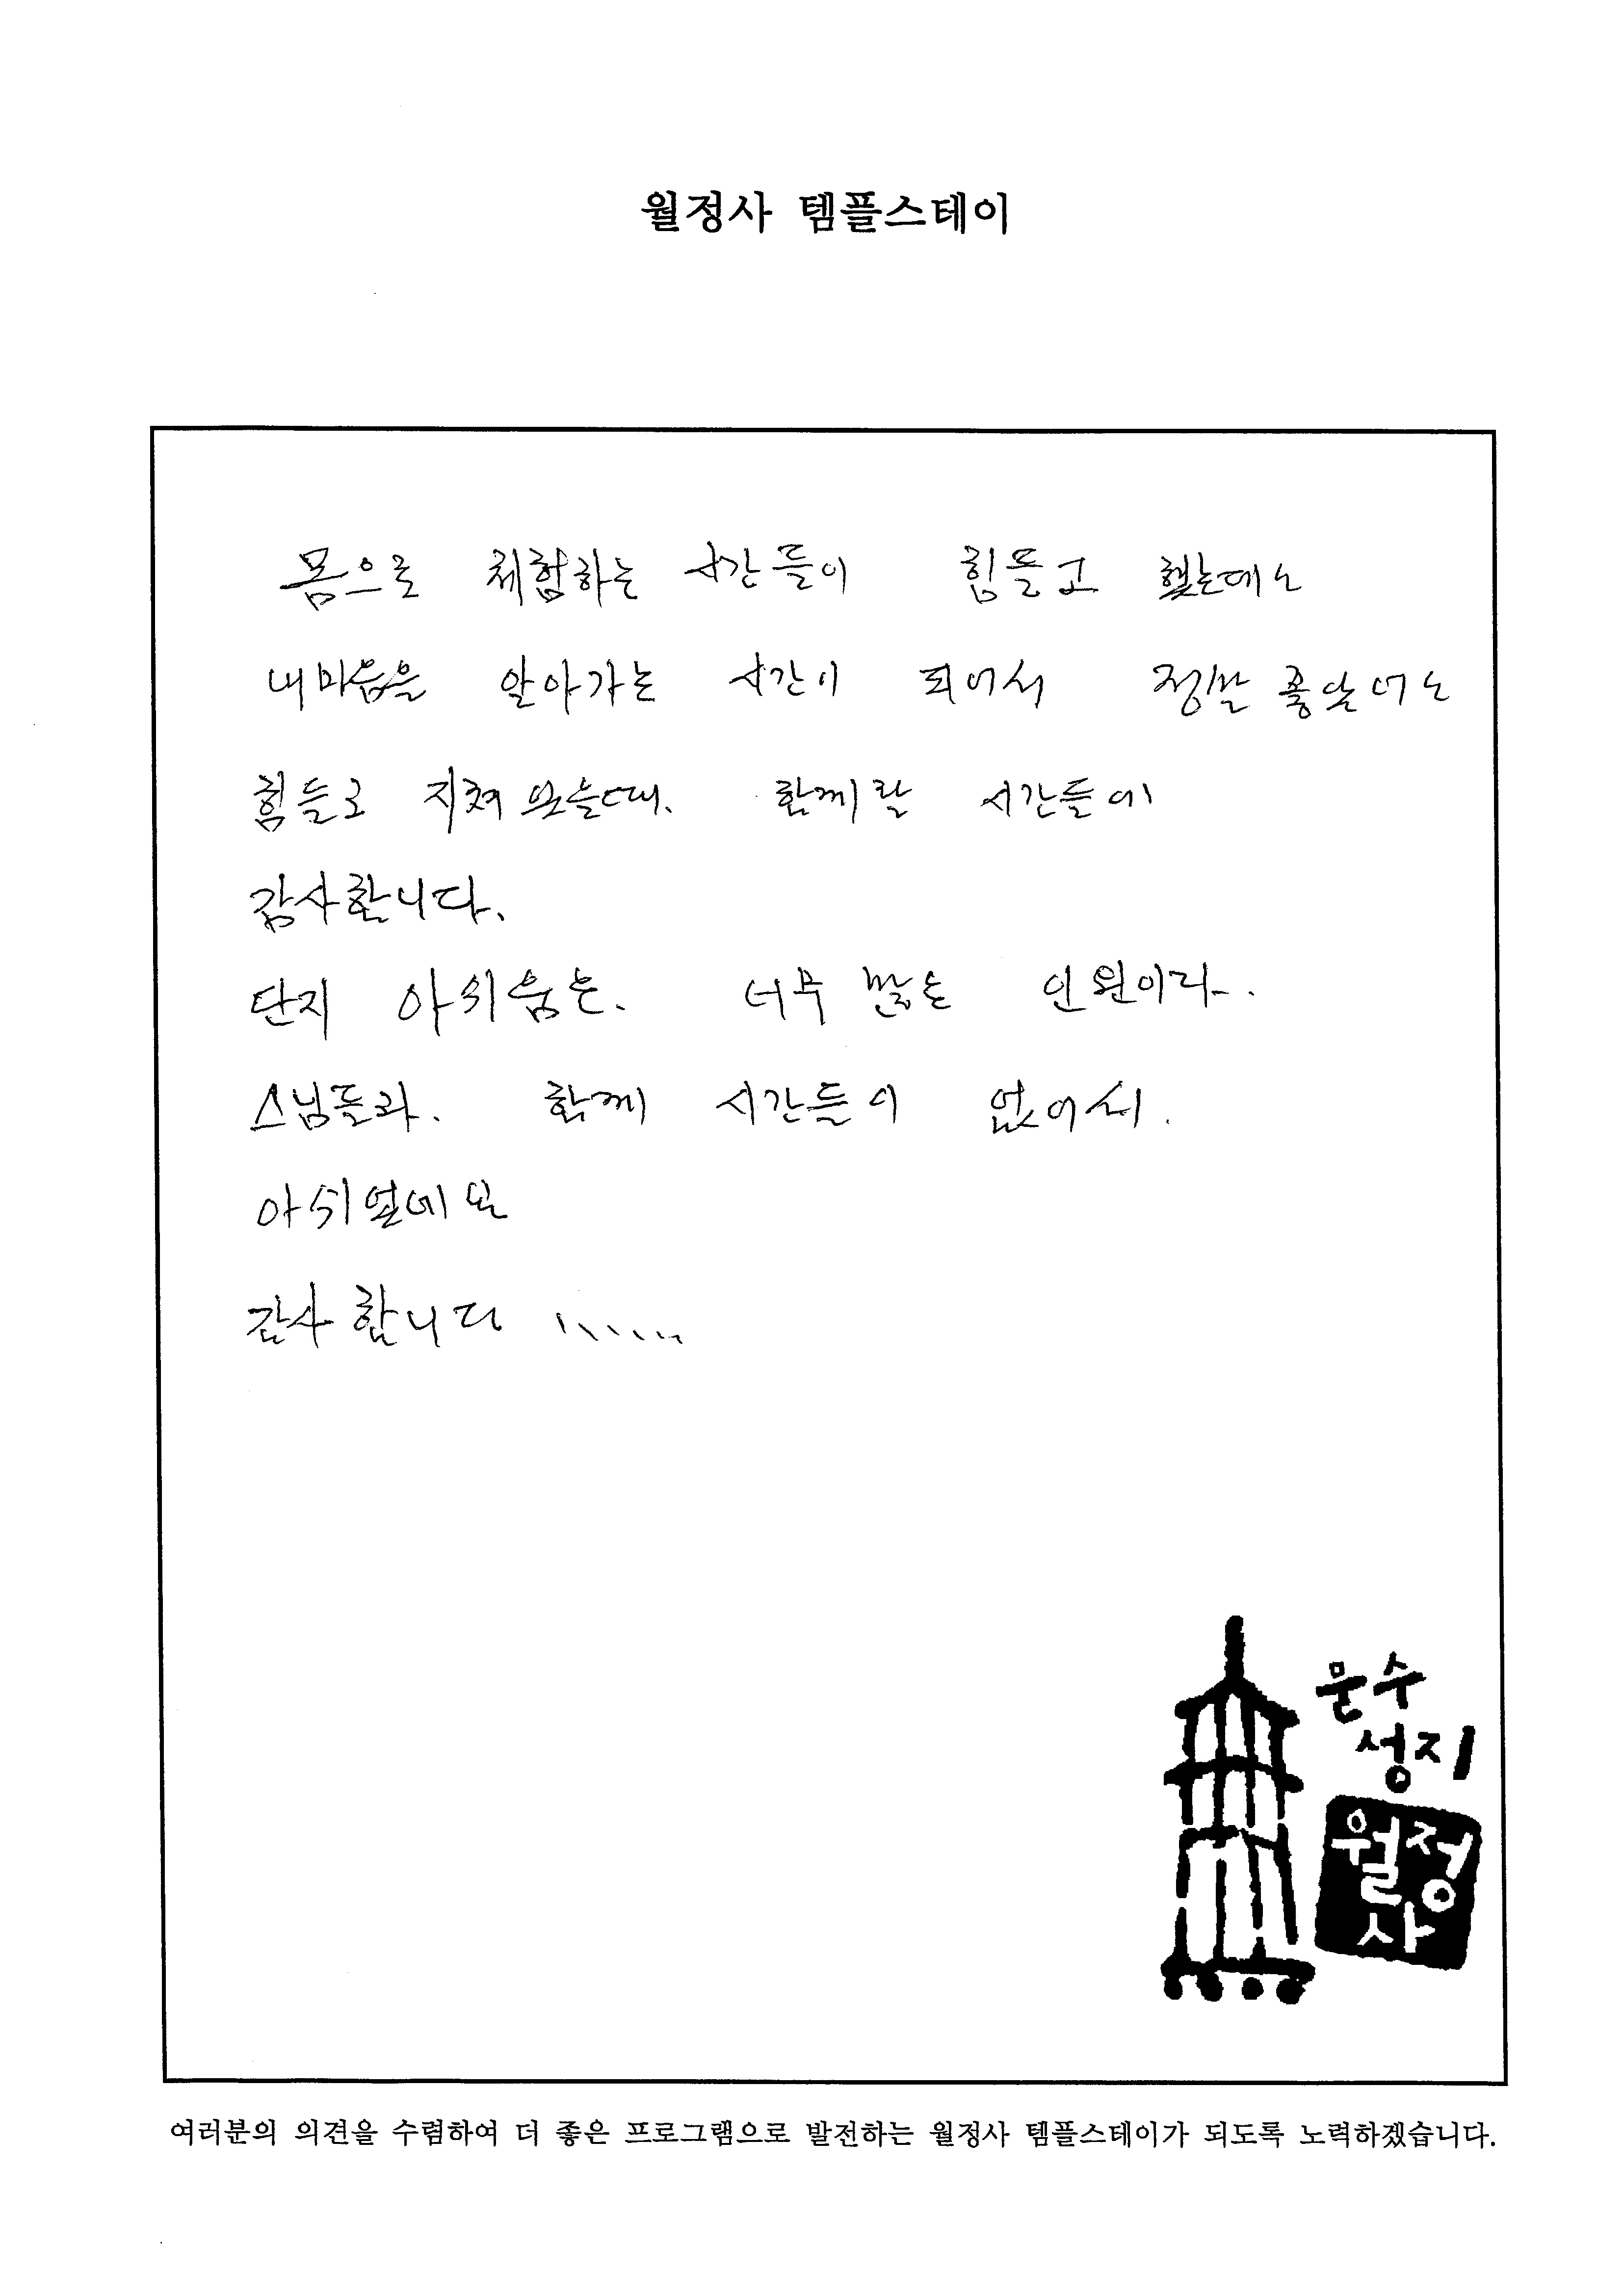 월정사 템플스테이
몸으로 체험하는 시간들이 힘들고 했는데도
내마음을 알아가는 시간이 되어서 정말 좋았어요
힘들고 지쳐 있을때. 함께한 시간들이
감사합니다.
단지 아쉬움은. 너무 많은 인원이라.
스님들과. 함께 시간들이 없어서.
아쉬웠네요
감사합니다 ......
문수
성지
월정
사
여러분의 의견을 수렴하여 더 좋은 프로그램으로 발전하는 월정사 템플스테이가 되도록 노력하겠습니다.